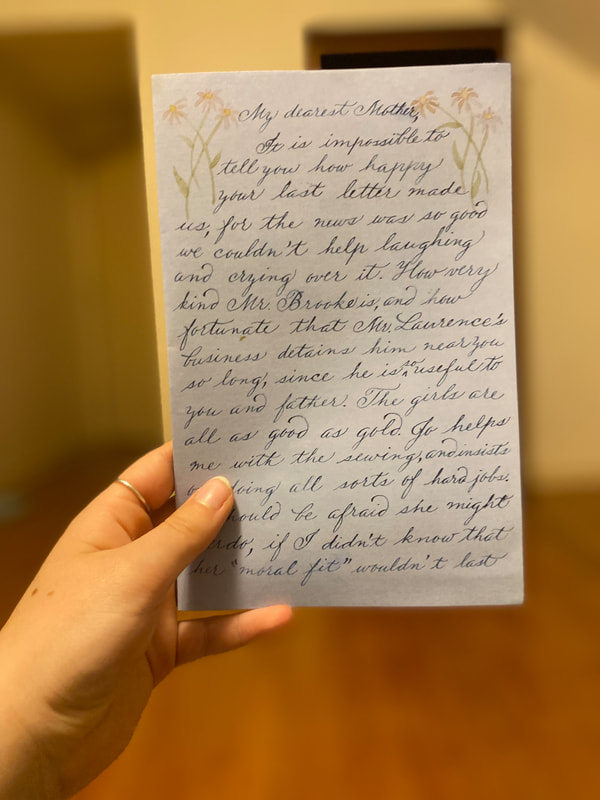 My dearest Mother,
It is impossible to
tell you how happy
your last letter made
us, for the news was so good
we couldn't help laughing
and crying over it. How very
kind Mr. Brooke is, and how
fortunate that Mr. Laurence's
business detains him near you
so long, since he is so useful to
you and father. The girls are
all as good as gold. Jo helps
me with the sewing, and insists
doing all sorts of hard jobs.
be afraid she might
if I didn't know that
her "moral fit" wouldn't last